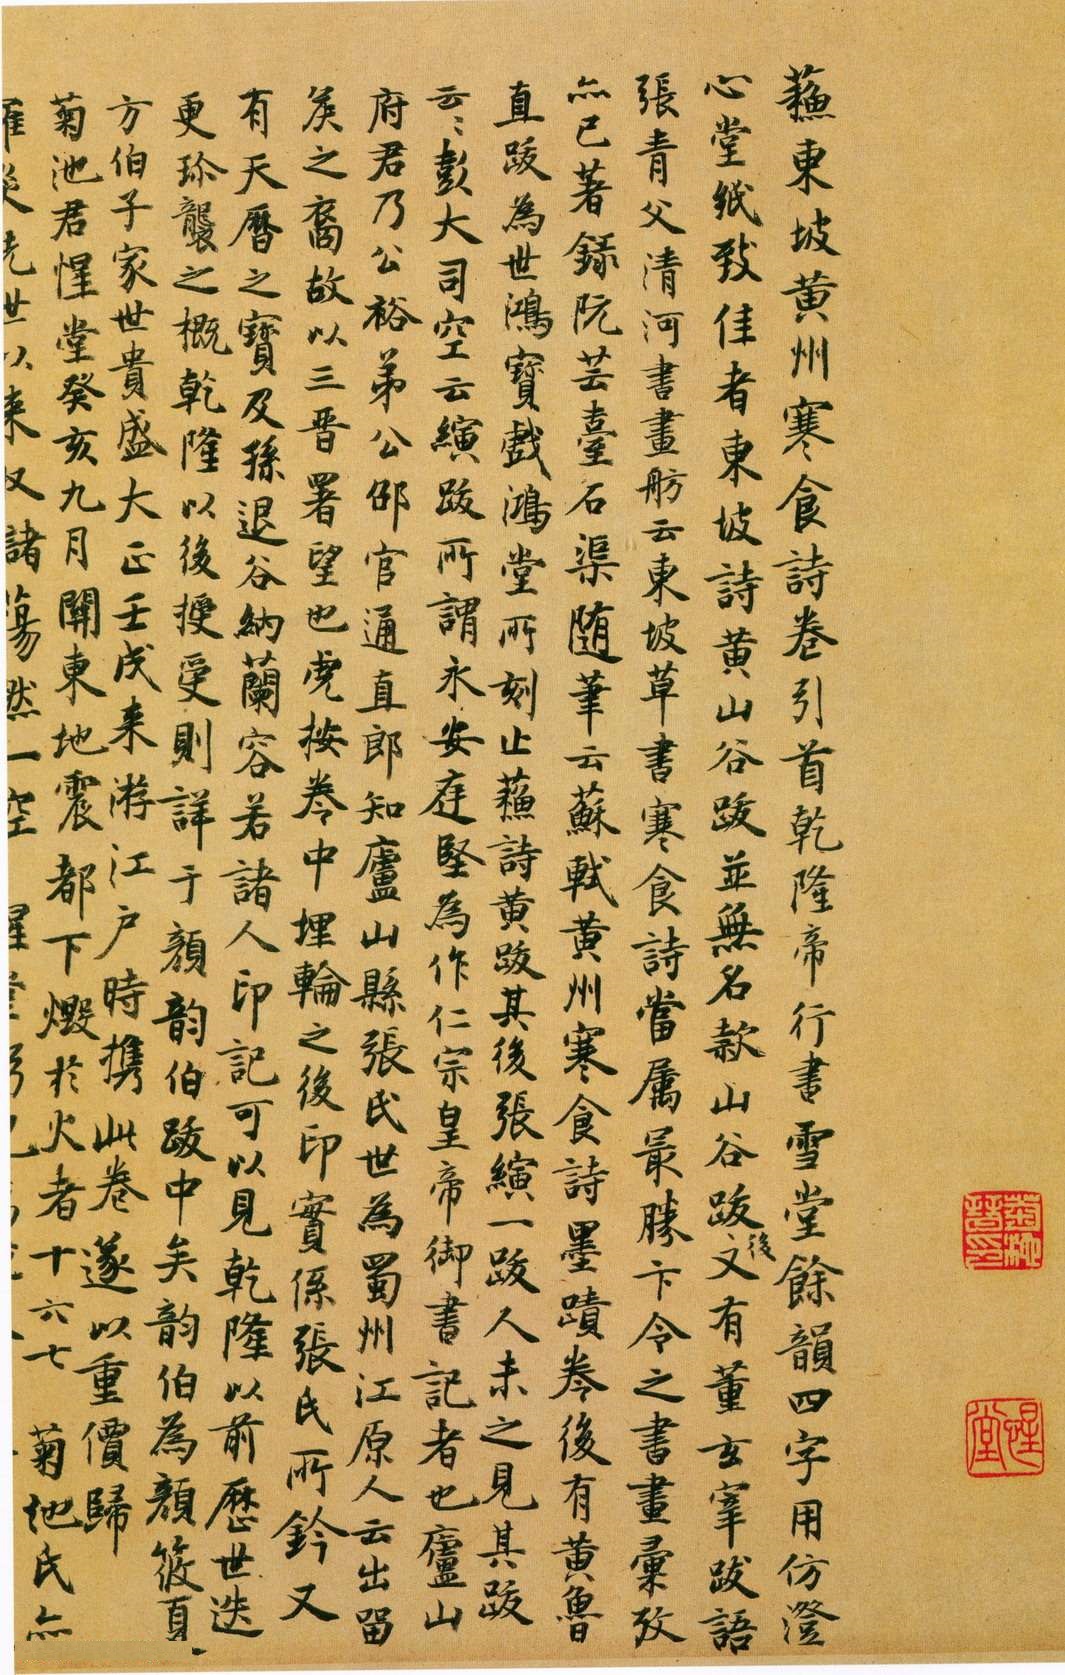 蘓東坡黄州寒食詩卷引首乾隆帝行書雪堂餘韻四字用仿澄
心堂紙致佳者東坡詩黄山谷跋並無名款山谷跋後又有董玄宰跋語
張青父清河書畫舫云東坡草書寒食詩當属最勝卞令之書畫彙攷
亦已著録阮芸臺石渠随筆云蘇軾黄州寒食詩墨蹟卷後有黄魯
直跋為世鴻寶戲鴻堂所刻止蘓詩黄跋其後張縯一跋人未之見其跋
云〻彭大司空云縯跋所謂永安庭堅為作仁宗皇帝御書記者也廬山
府君乃公裕弟公邵官通直郎知廬山縣張氏世為蜀州江原人云出留
矦之裔故以三晋署望也虎按卷中埋輪之後印實係張氏所鈐又
有天曆之寶及孫退谷納蘭容若諸人印記可以見乾隆以前歴世迭
更珍襲之概乾隆以後授受則詳于顔韵伯跋中矣韵伯為顔筱夏
方伯子家世貴盛大正壬戌来游江户時携此卷遂以重價歸
菊池君惺堂癸亥九月關東地震都下燬於火者十六七 菊池氏亦
罹災先世以来収諸蕩然一空 惺堂